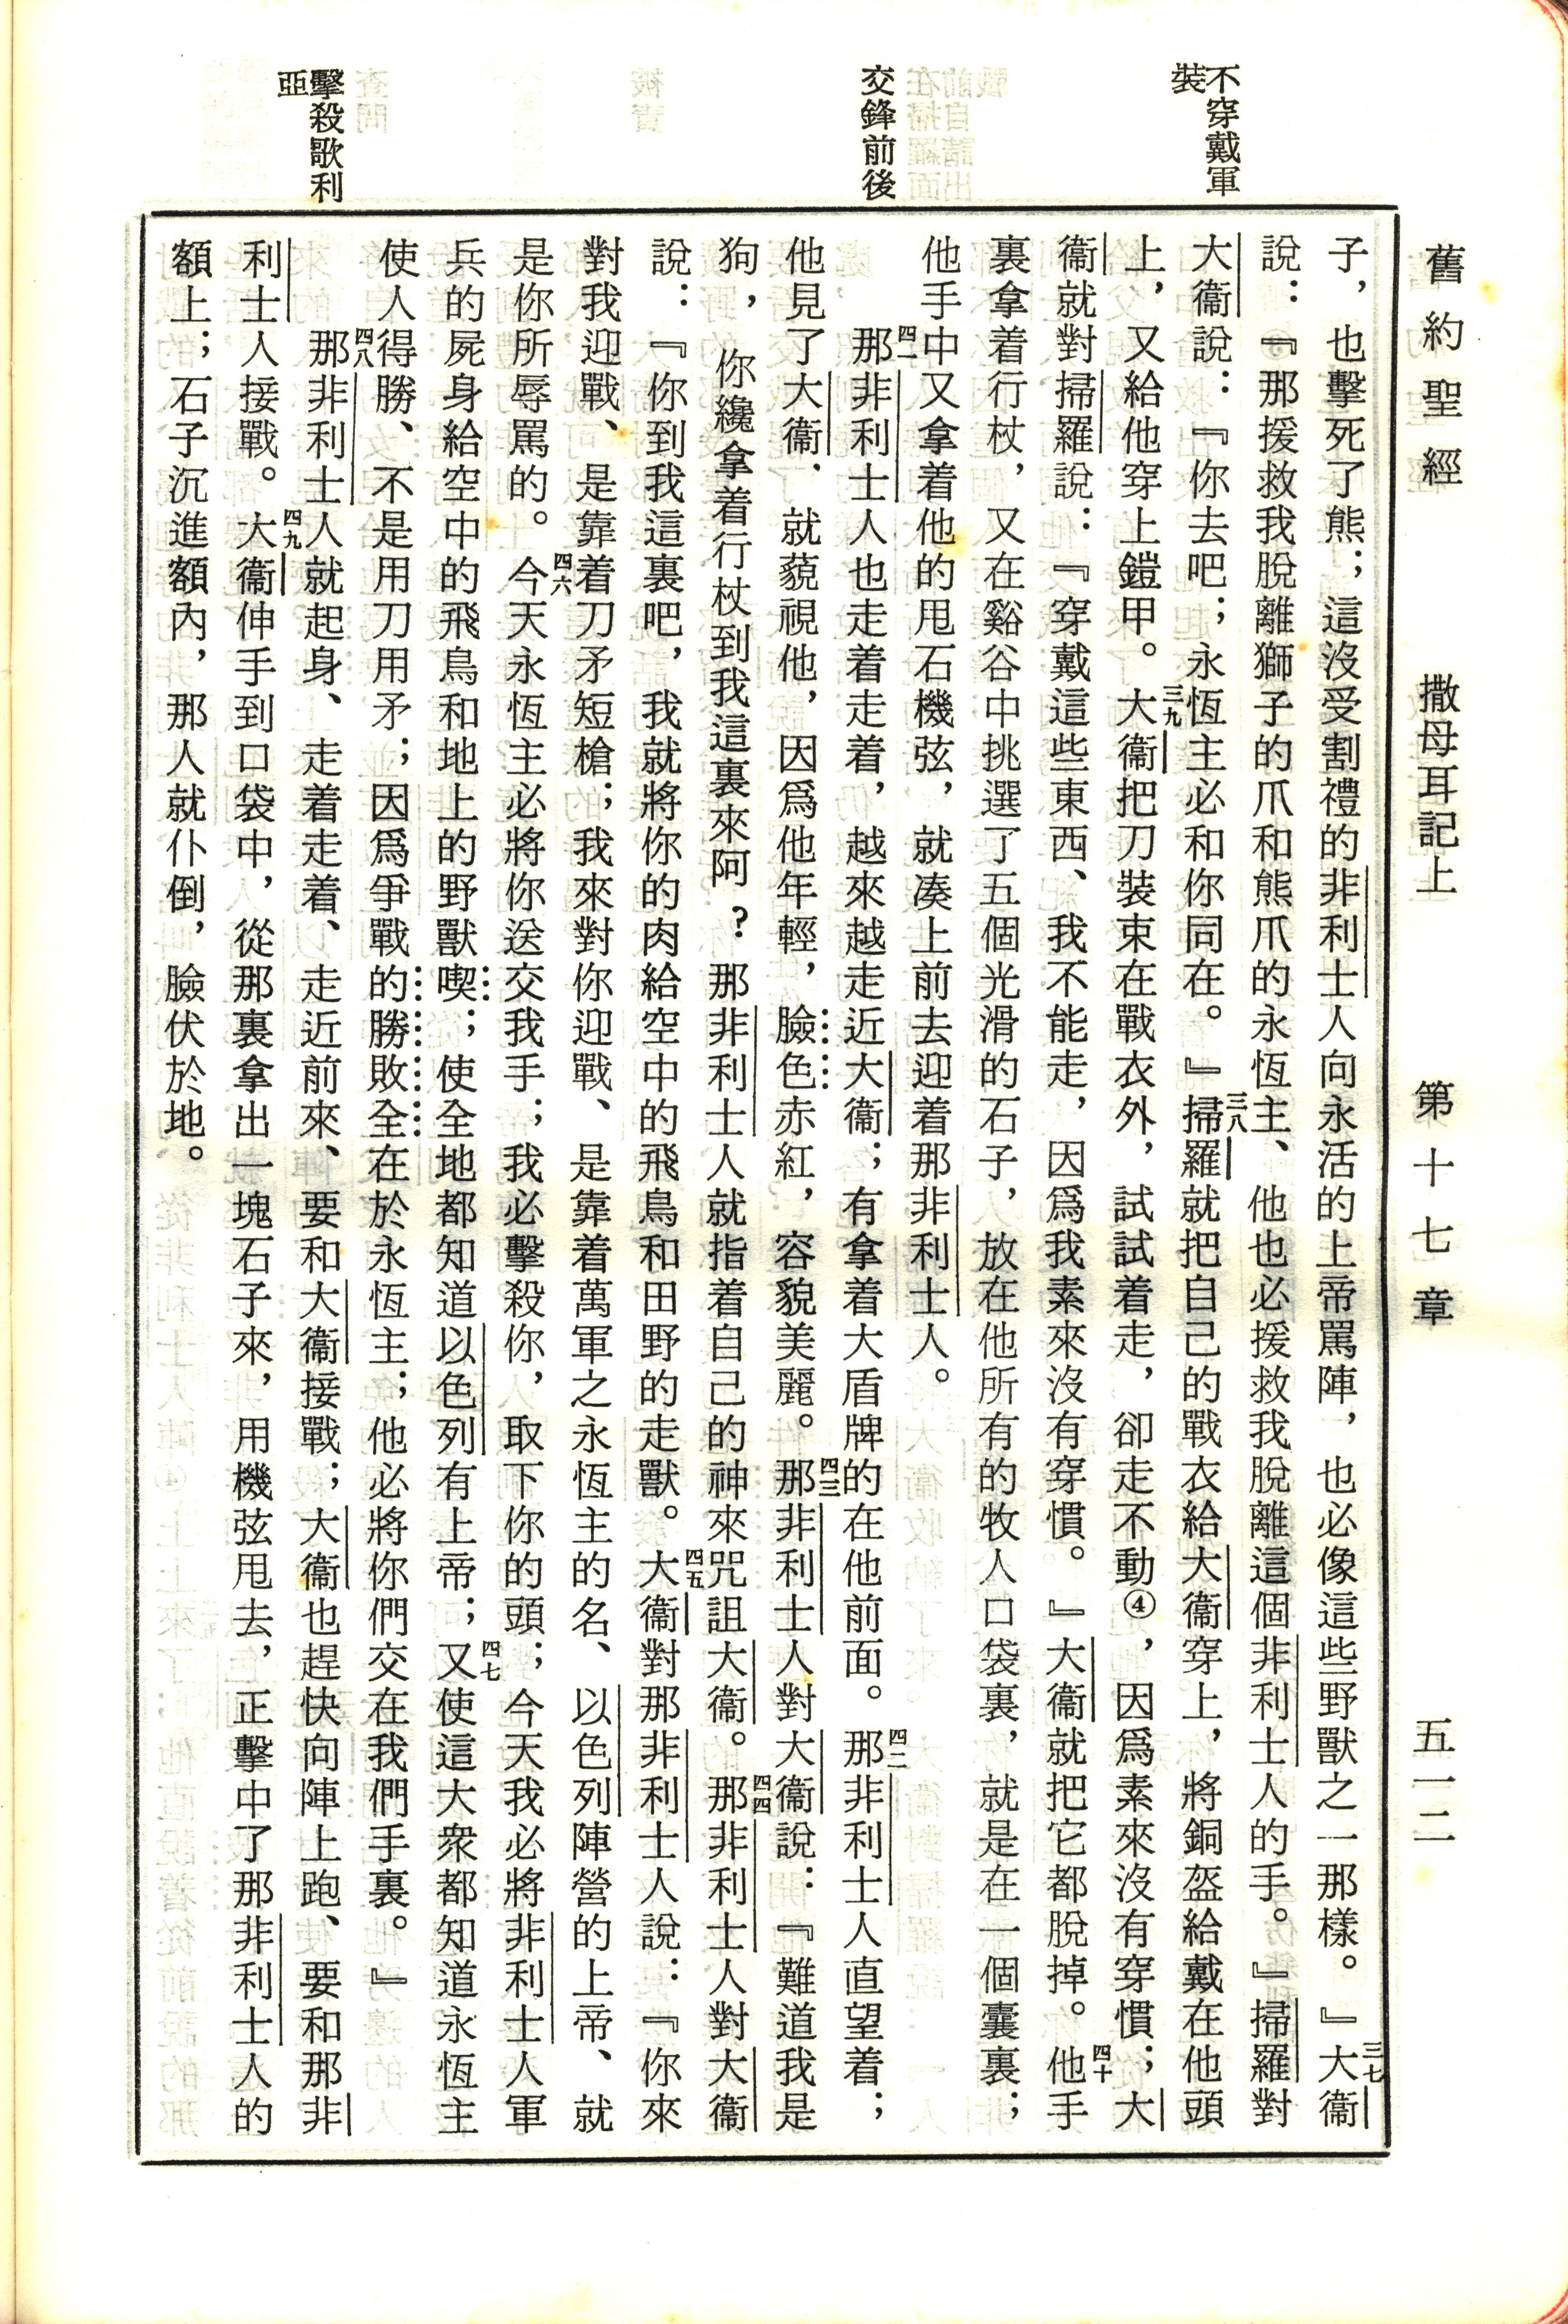 舊約聖經　撒母耳記上　第十七章　五一二
不穿戴軍
裝
交鋒前後
擊殺歌利
亞
子，也擊死了熊；這沒受割禮的非利士人向永活的上帝罵陣，也必像這些野獸之一那樣。』三七大衞
說：『那援救我脫離獅子的爪和熊爪的永恆主、他也必援救我脫離這個非利士人的手。』掃羅對
大衞說：『你去吧；永恆主必和你同在。』三八掃羅就把自己的戰衣給大衞穿上，將銅盔給戴在他頭
上，又給他穿上鎧甲。三九大衞把刀裝束在戰衣外，試試着走，卻走不動④，因爲素來沒有穿慣；大
衞就對掃羅說：『穿戴這些東西、我不能走，因爲我素來沒有穿慣。』大衞就把它都脫掉。四十他手
裏拿着行杖，又在谿谷中挑選了五個光滑的石子，放在他所有的牧人口袋裏，就是在一個囊裏；
他手中又拿着他的甩石機弦，就凑上前去迎着那非利士人。
四一那非利士人也走着走着，越來越走近大衞；有拿着大盾牌的在他前面。四二那非利士人直望着；
他見了大衞．就藐視他，因爲他年輕，臉色赤紅，容貌美麗。四三那非利士人對大衞說：『難道我是
狗，你纔拿着行杖到我這裏來阿？那非利士人就指着自己的神來咒詛大衞。四四那非利士人對大衞
說：『你到我這裏吧，我就將你的肉給空中的飛鳥和田野的走獸。四五大衞對那非利士人說：『你來
對我迎戰、是靠着刀矛短槍；我來對你迎戰、是靠着萬軍之永恆主的名、以色列陣營的上帝、就
是你所辱罵的。四六今天永恆主必將你送交我手；我必擊殺你，取下你的頭；今天我必將非利士人軍
兵的屍身給空中的飛鳥和地上的野獸喫；使全地都知道以色列有上帝；四七又使這大衆都知道永恆主
使人得勝、不是用刀用矛；因爲爭戰的勝敗全在於永恆主；他必將你們交在我們手裏。』
四八那非利士人就起身、走着走着、走近前來、要和大衞接戰；大衞也趕快向陣上跑、要和那非
利士人接戰。四九大衞伸手到口袋中，從那裏拿出一塊石子來，用機弦甩去，正擊中了那非利士人的
額上；石子沉進額內，那人就仆倒，臉伏於地。